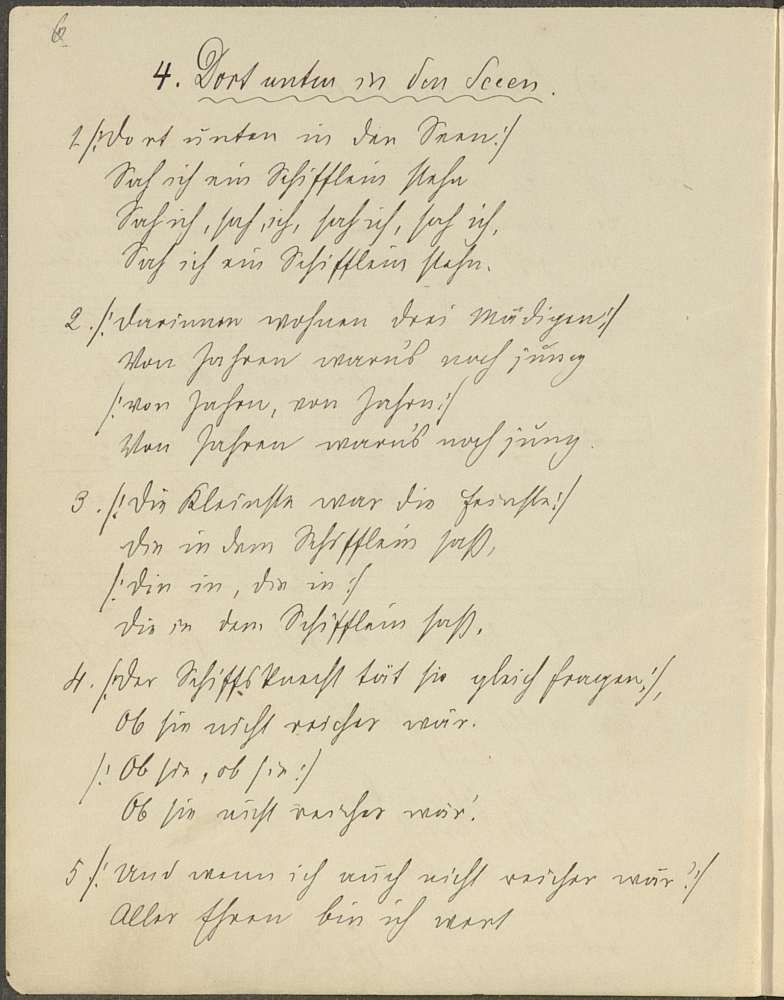 6
4. Dort unten in den Seeen.
1. /: Dort unten in den Seen :/
Sah ich ein Schifflein stehn
Sah ich, sah ich, sah ich, sah ich,
Sah ich ein Schifflein stehn.
2. /: Darinnen wohnen drei Mädigen :/
Von Jahren waren's noch jung
/: von Jahrn, von Jahrn :/
Von Jahren waren's noch jung.
3. /: Die Kleinste war die Feinste :/
Die in dem Schifflein saß,
/: Die in, die in :/
Die in dem Schifflein saß.
4. /: Der Schiffsknecht tät sie gleich fragen :/,
Ob sie nicht reicher wär.
/: Ob sie, ob sie :/
Ob sie nicht reicher wär'.
5 /: Und wenn ich auch nicht reicher wär' :/
Aller Ehren bin ich wert